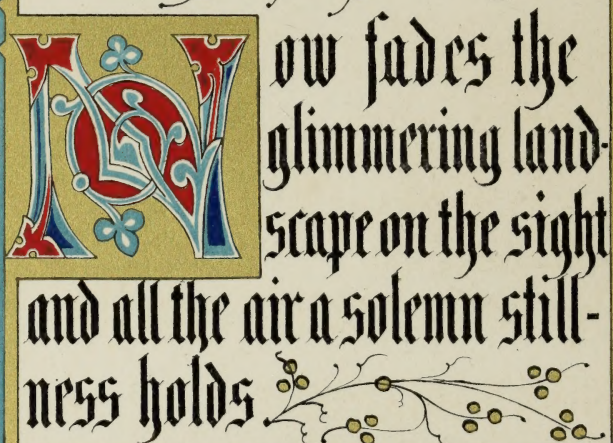 Now fades the
glimmering land-
scape on the sight
and all the air a solemn still-
ness holds.